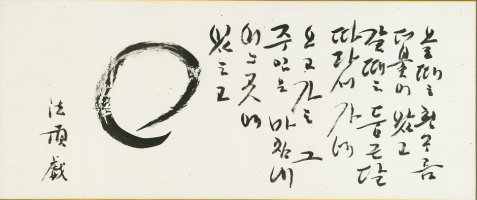 올때는 흰구름
더불어 왔고
갈때는 둥근달
따라서 가네
오고가는 그
주인은 마침내
어느곳에
있는고
法頂戱